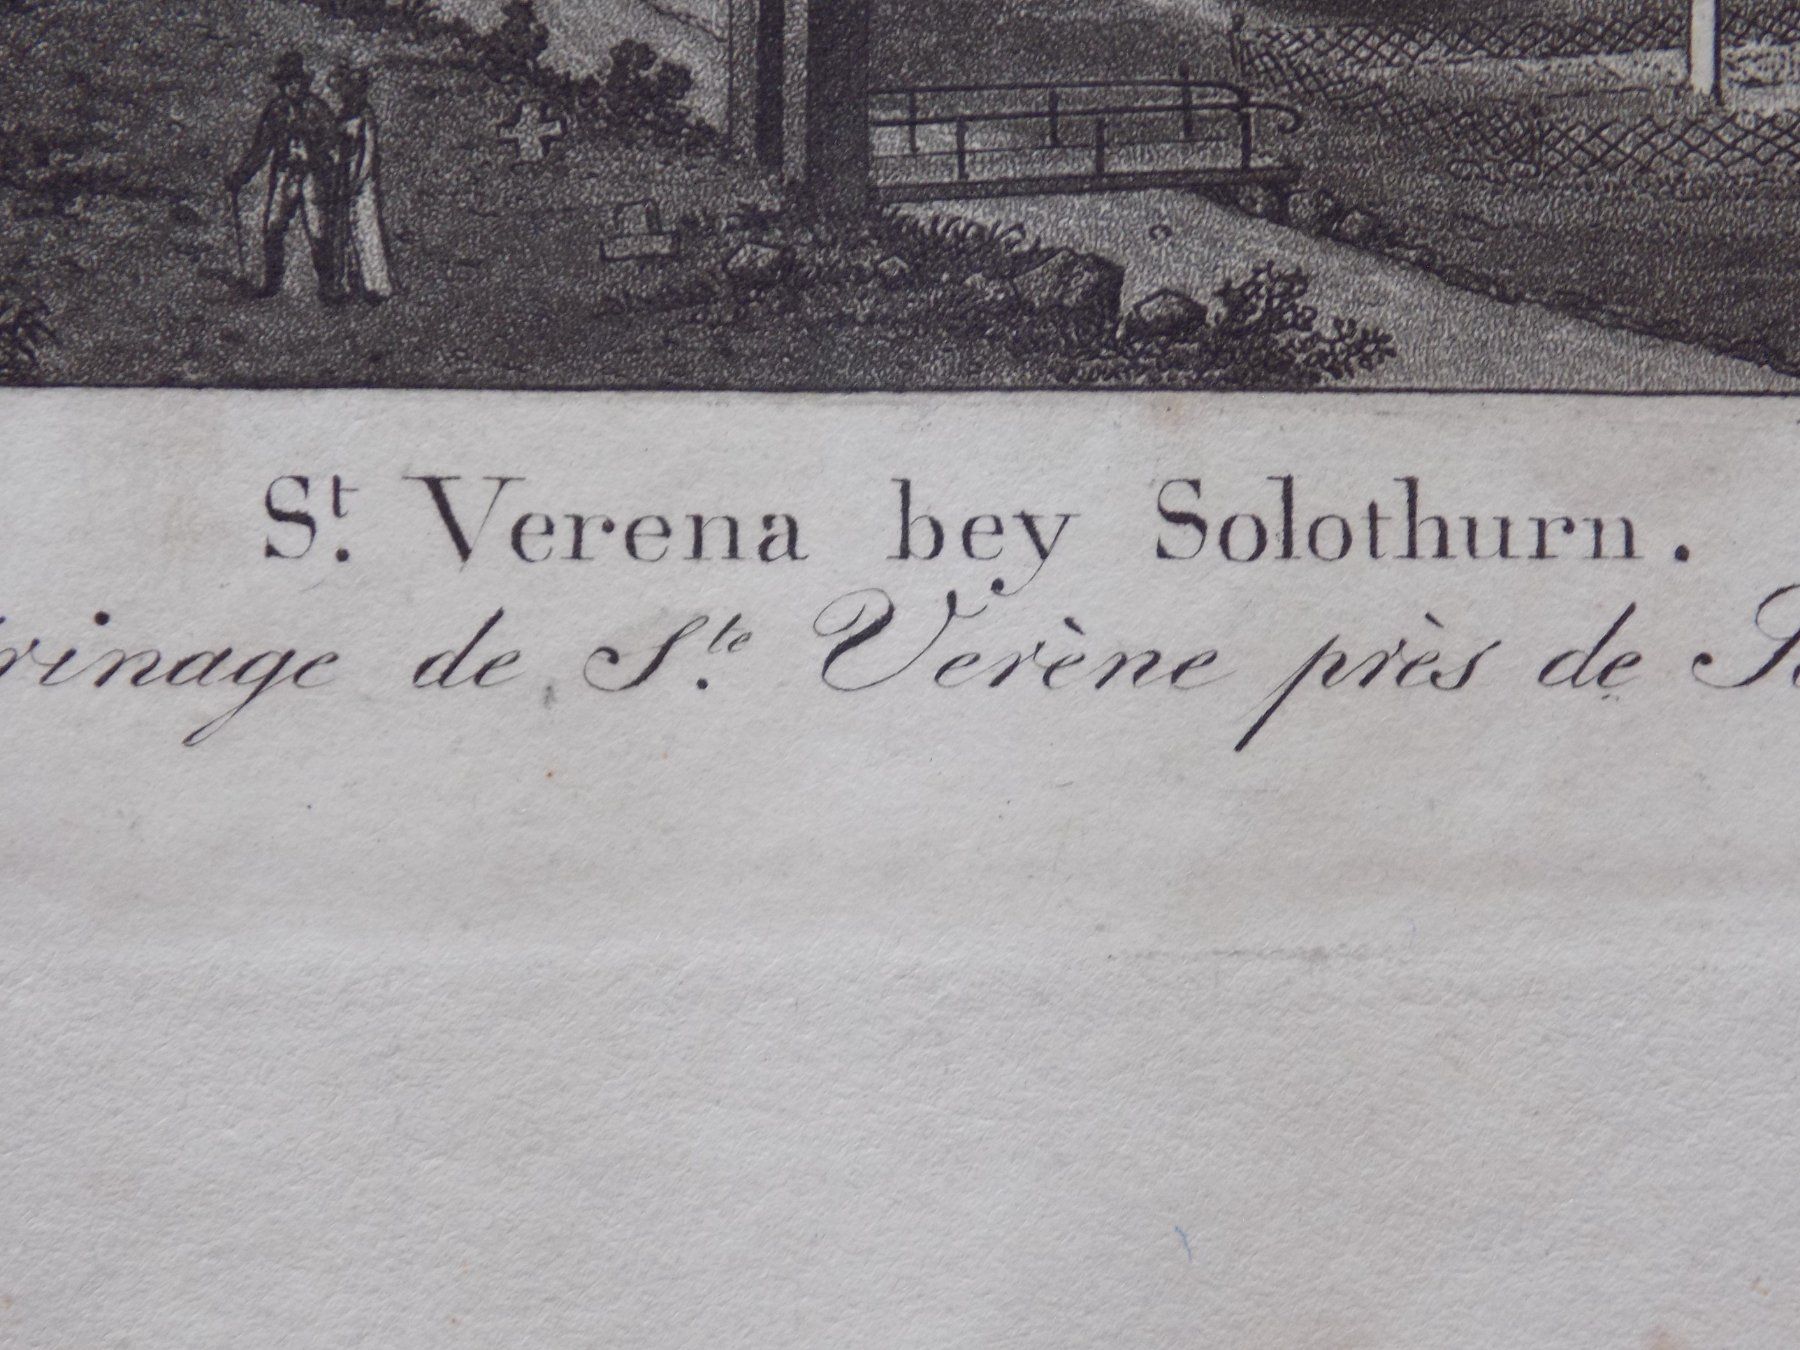 St. Verena bey Solothurn.
rinage de Ste. Verène près de